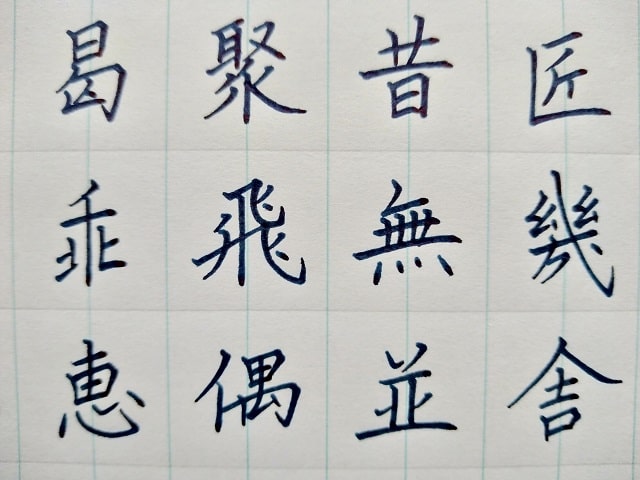 曷聚昔匠
乖飛無幾
恵偶並舎